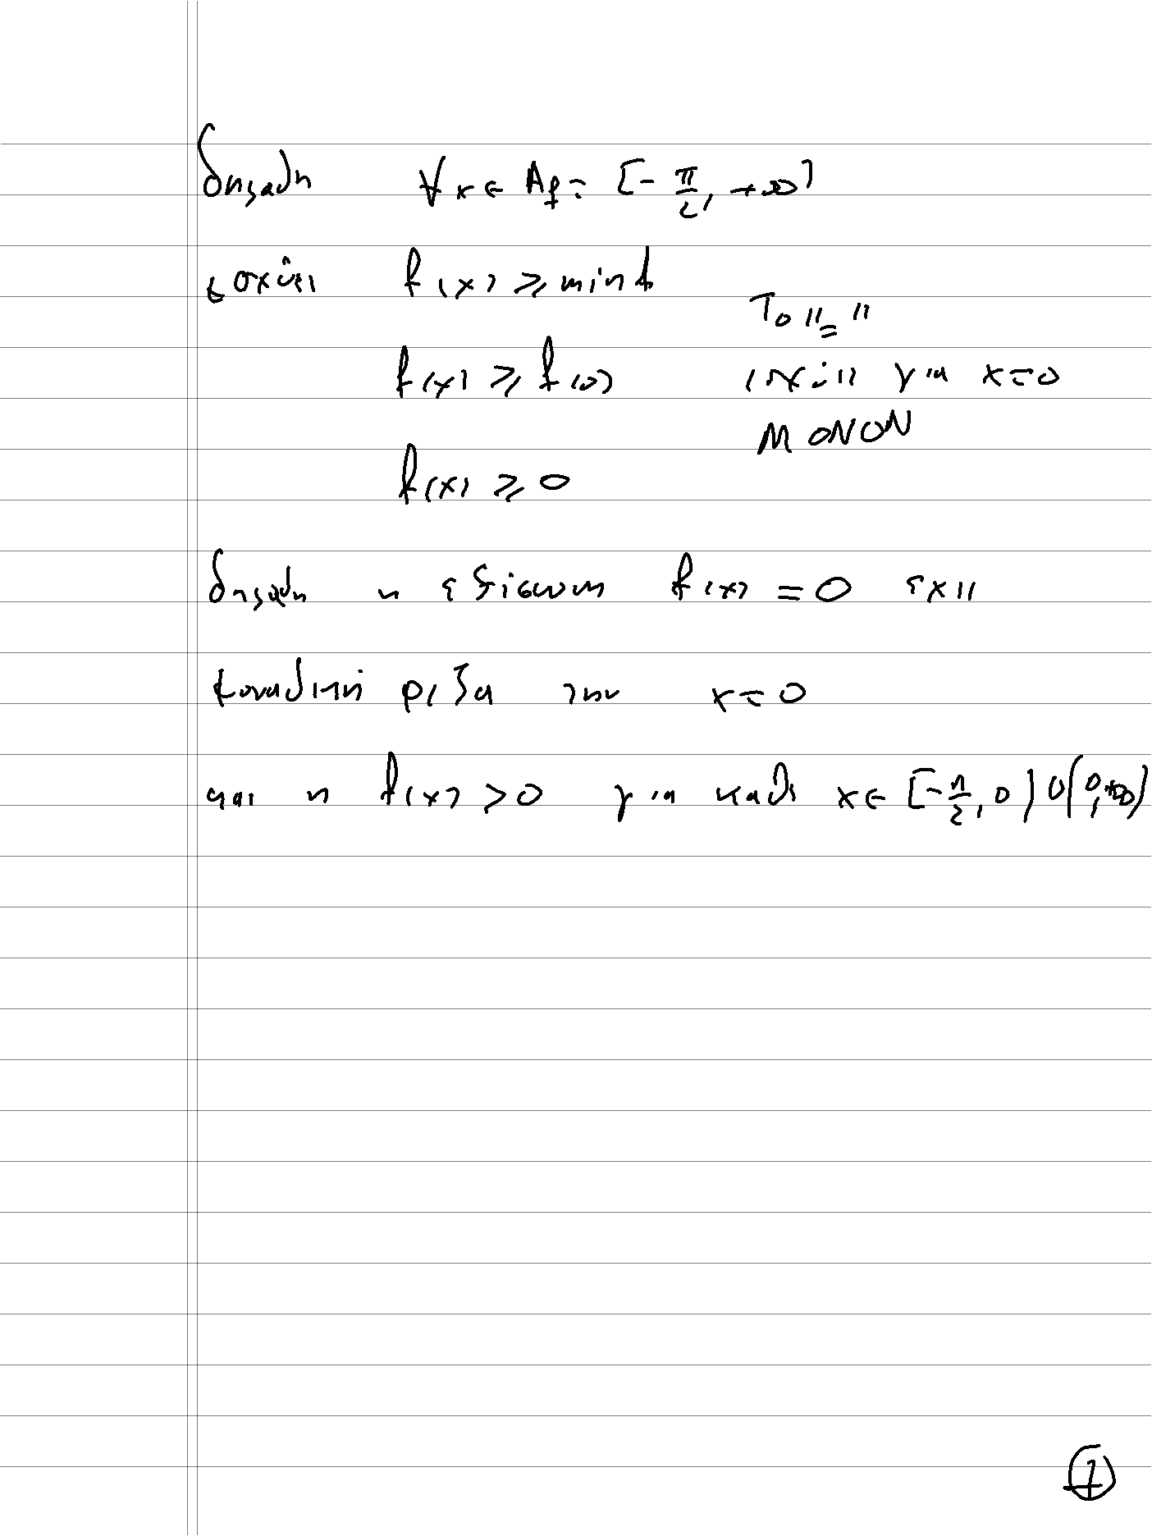 δηλαδή ∀x ∈ A_f = [-π/2, +∞)
ισχύει f(x) ⩾ min f
Το "="
f(x) ⩾ f(0) ισχύει για x=0
ΜΟΝΟΝ
f(x) ⩾ 0
δηλαδή η εξίσωση f(x) = 0 έχει
μοναδική ρίζα την x=0
και η f(x) > 0 για κάθε x ∈ [-π/2, 0) ∪ (0, +∞)
7